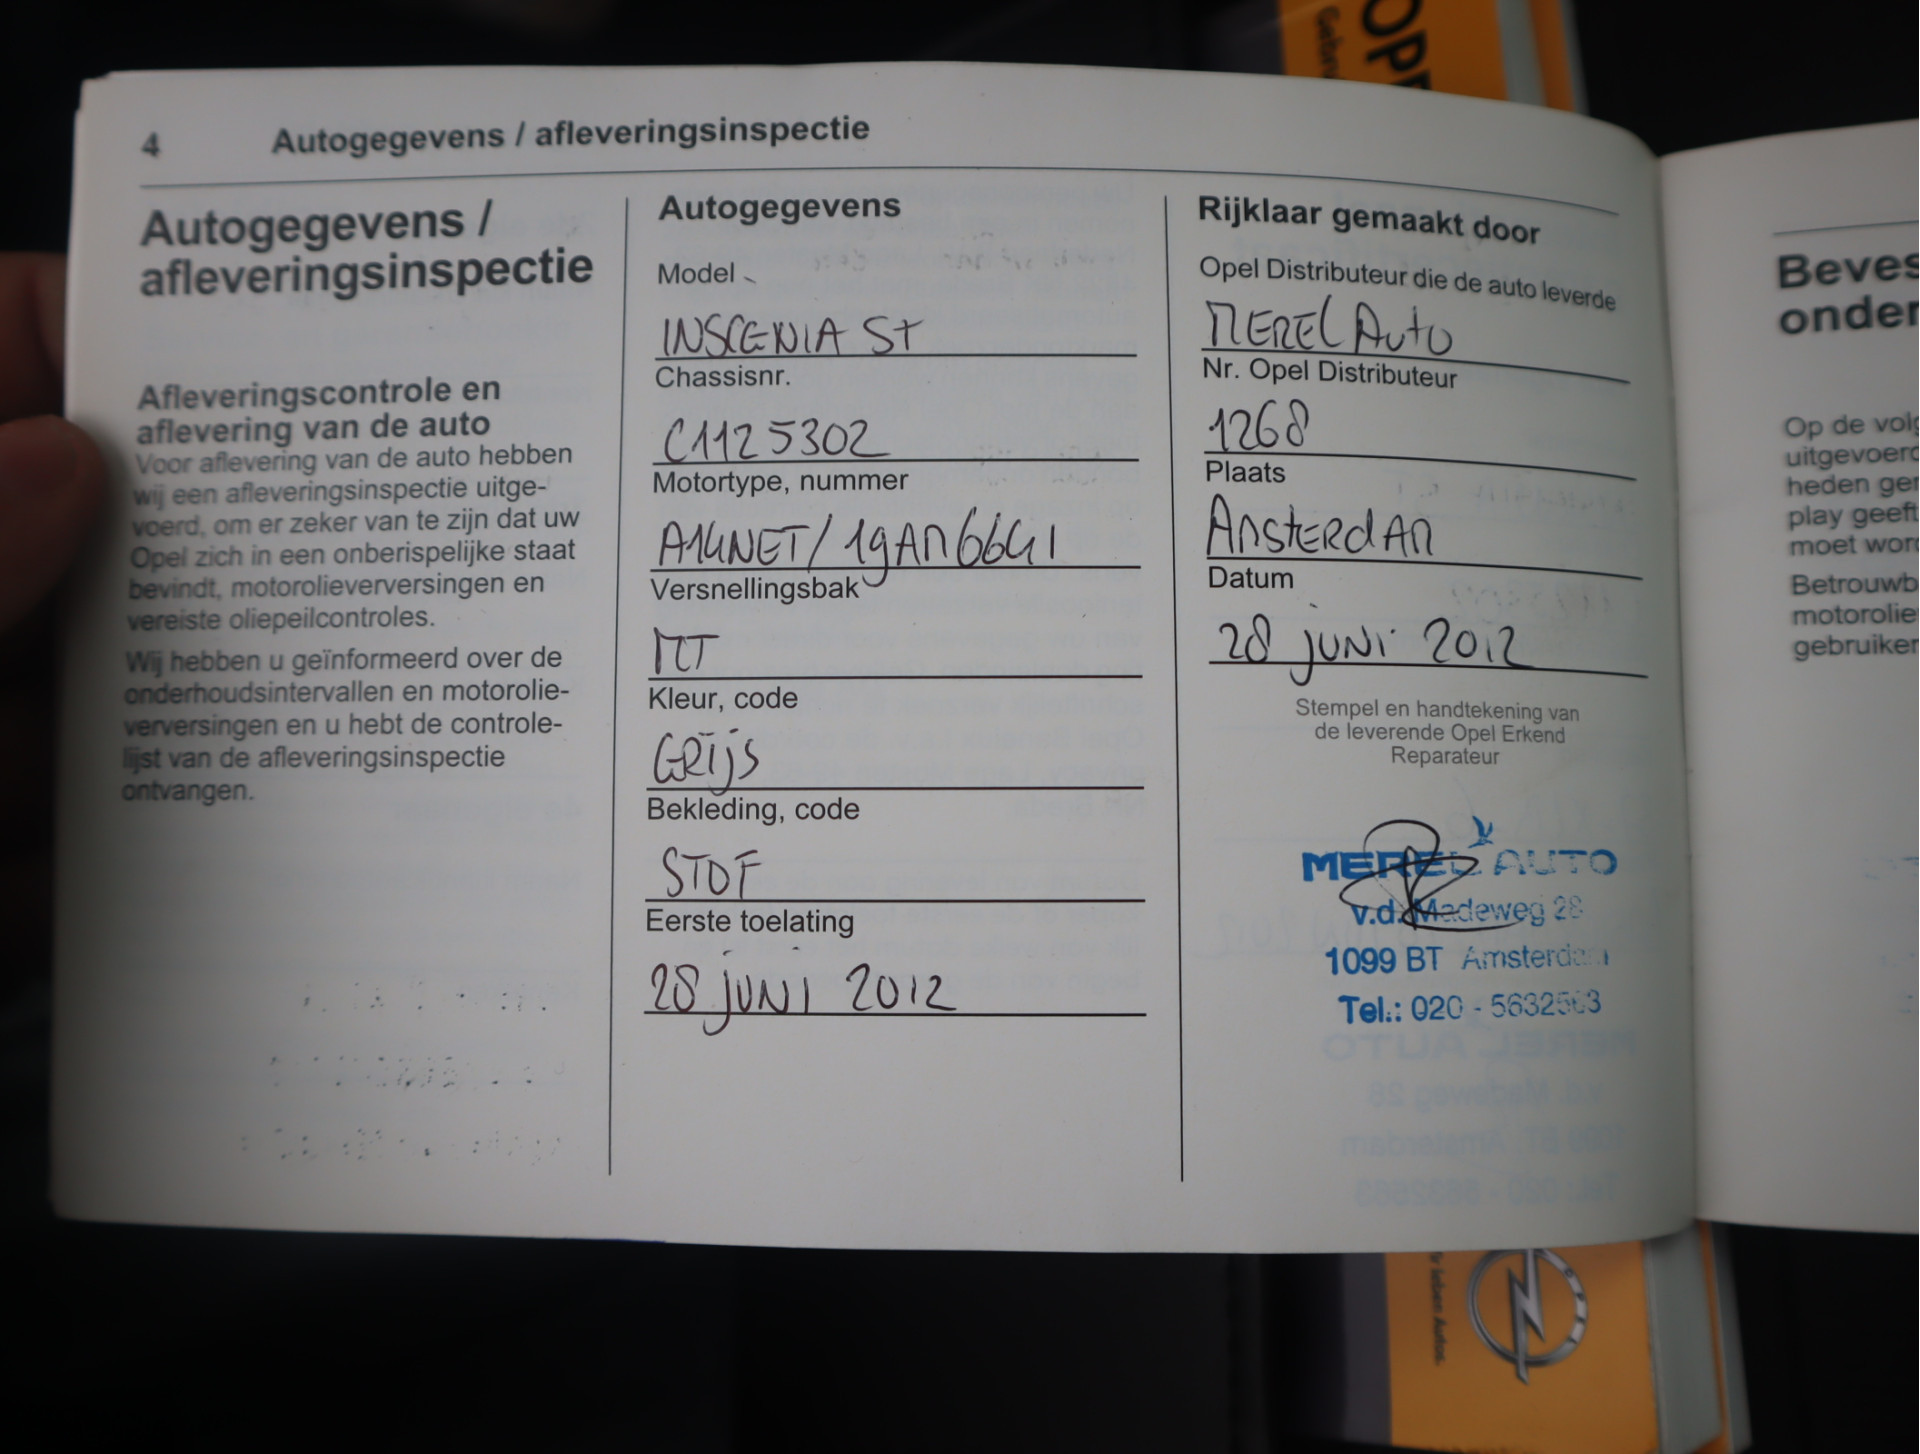 OPE
Gebru
4 Autogegevens / afleveringsinspectie
Autogegevens /
afleveringsinspectie
Afleveringscontrole en
aflevering van de auto
Voor aflevering van de auto hebben
wij een afleveringsinspectie uitge-
voerd, om er zeker van te zijn dat uw
Opel zich in een onberispelijke staat
bevindt, motorolieverversingen en
vereiste oliepeilcontroles.
Wij hebben u geïnformeerd over de
onderhoudsintervallen en motorolie-
verversingen en u hebt de controle-
lijst van de afleveringsinspectie
ontvangen.
Autogegevens
Model
INSIGNIA ST
Chassisnr.
C1125302
Motortype, nummer
A14NET / 19AM6641
Versnellingsbak
MT
Kleur, code
GRIJS
Bekleding, code
STOF
Eerste toelating
28 JUNI 2012
Rijklaar gemaakt door
Opel Distributeur die de auto leverde
MEREL AUTO
Nr. Opel Distributeur
1268
Plaats
AMSTERDAM
Datum
28 JUNI 2012
Stempel en handtekening van
de leverende Opel Erkend
Reparateur
MEREL AUTO
v.d. Madeweg 28
1099 BT Amsterdam
Tel.: 020 - 5632563
Beves
onder
Op de volg
uitgevoerd
heden ger
play geeft
moet word
Betrouwb
motorolie
gebruiker
OPEL
r leben Autos.